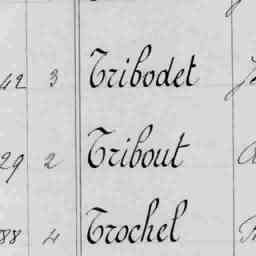 42 3 Tribodet
29 2 Tribout
88 4 Trochel